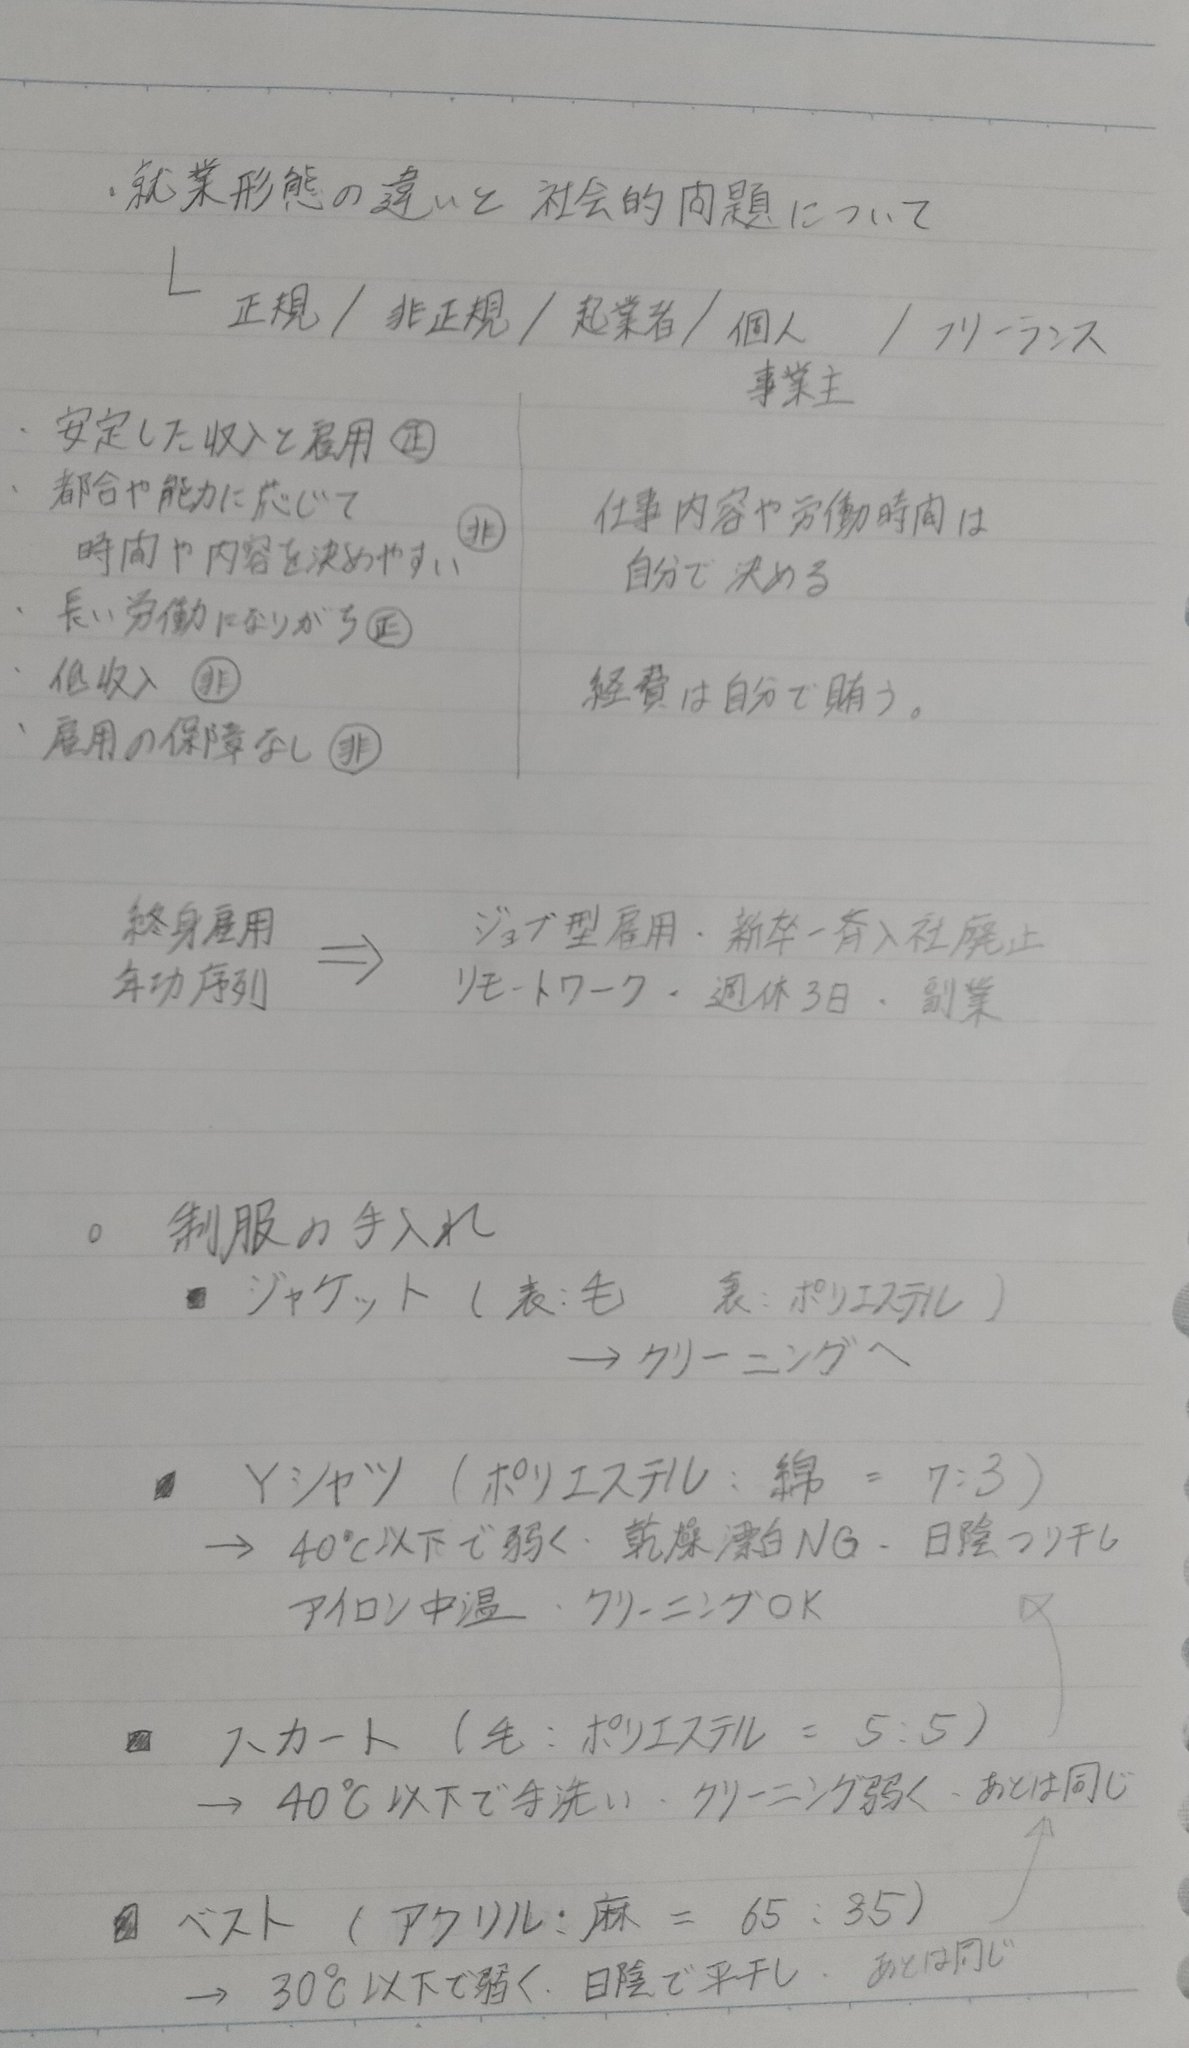 ・就業形態の違いと社会的問題について
正規/非正規/起業者/個人事業主/フリーランス
・安定した収入と雇用 ㊣
・都合や能力に応じて
時間や内容を決めやすい 非
・長い労働になりがち ㊣
・低収入 非
・雇用の保障なし 非
仕事内容や労働時間は
自分で決める
経費は自分で賄う。
終身雇用
年功序列
⇒
ジョブ型雇用・新卒一斉入社廃止
リモートワーク・週休3日・副業
○ 制服の手入れ
■ ジャケット(表:毛 裏:ポリエステル)
→クリーニングへ
■ Yシャツ(ポリエステル:綿 = 7:3)
→ 40℃以下で弱く・乾燥漂白NG・日陰つり干し
アイロン中温・クリーニングOK
■ スカート(毛:ポリエステル = 5:5)
→ 40℃以下で手洗い・クリーニング弱く・あとは同じ
■ ベスト(アクリル:麻 = 65:35)
→ 30℃以下で弱く・日陰で平干し・あとは同じ